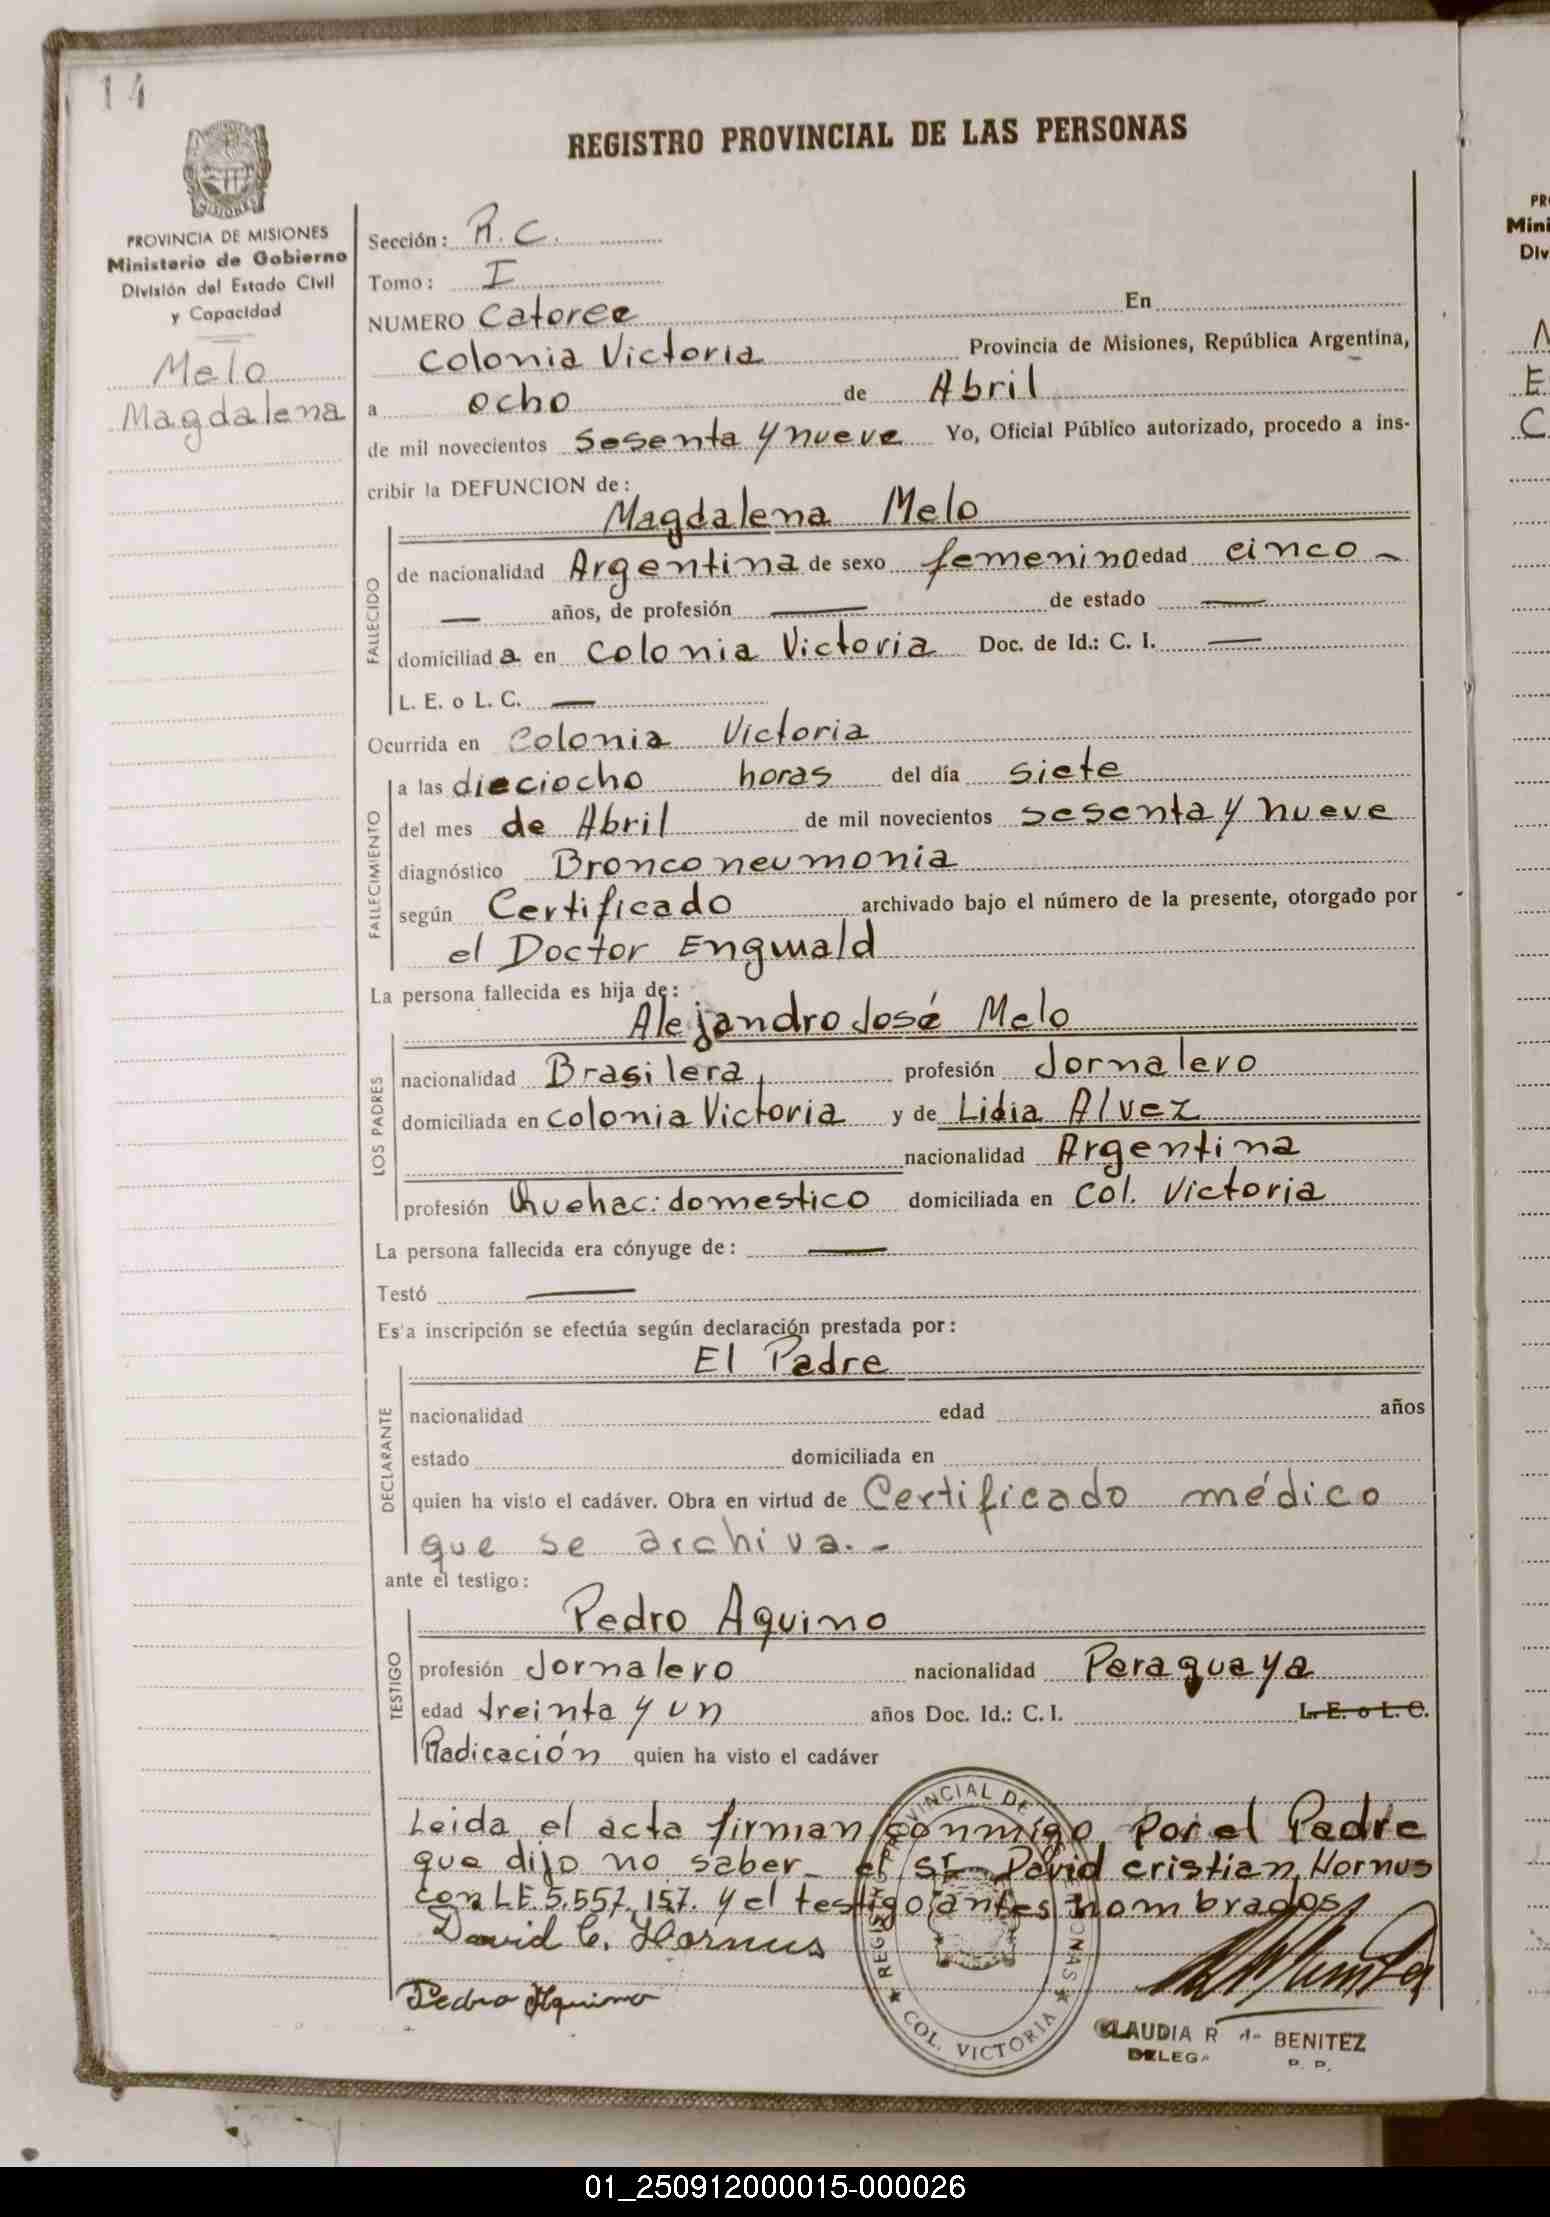 14
REGISTRO PROVINCIAL DE LAS PERSONAS
MISIONES
PROVINCIA DE MISIONES
Ministerio de Gobierno
División del Estado Civil
y Capacidad
Melo
Magdalena
Sección: R. C.
Tomo: I
NUMERO Catorce En
Colonia Victoria Provincia de Misiones, República Argentina,
a ocho de Abril
de mil novecientos sesenta y nueve Yo, Oficial Público autorizado, procedo a ins-
cribir la DEFUNCION de:
Magdalena Melo
FALLECIDO
de nacionalidad Argentina de sexo femenino edad cinco —
— años, de profesión — de estado —
domiciliad a en Colonia Victoria Doc. de Id.: C. I. —
L. E. o L. C. —
Ocurrida en Colonia Victoria
FALLECIMIENTO
a las dieciocho horas del día siete
del mes de Abril de mil novecientos sesenta y nueve
diagnóstico Bronconeumonia
según Certificado archivado bajo el número de la presente, otorgado por
el Doctor Engwald
La persona fallecida es hija de:
Alejandro José Melo
LOS PADRES
nacionalidad Brasilera, profesión Jornalero
domiciliada en colonia Victoria y de Lidia Alvez
nacionalidad Argentina
profesión Quehac: domestico domiciliada en Col. Victoria
La persona fallecida era cónyuge de: —
Testó —
Es'a inscripción se efectúa según declaración prestada por:
El Padre
DECLARANTE
nacionalidad edad años
estado domiciliada en
quien ha visto el cadáver. Obra en virtud de Certificado médico
que se archiva. -
ante el testigo:
Pedro Aquino
TESTIGO
profesión Jornalero nacionalidad Paraguaya
edad treinta y un años Doc. Id.: C. I. L. E. o L. C.
Radicación quien ha visto el cadáver
Leida el acta firman conmigo, por el Padre
que dijo no saber el Sr. David cristian Hornus
con LE 5.557.157. y el testigo antes nombrados
David C. Hornus
Pedro Aquino
COL. VICTORIA
CLAUDIA R de BENITEZ
DELEGA
P. P.
PR
Mini
Div
E
C
01_250912000015-000026